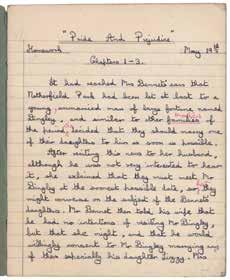 "Pride And Prejudice"
Homework May 19th
Chapters 1-3.
It had reached Mrs Bennet's ears that
Netherfield Park had been let at last to a
young, unmarried man of large fortune, named
Bingley, and similar to other families of
the period decided that they should marry one
of their daughters to him as soon as possible.
After voicing this news to her husband,
although he was not very interested to hear
it, she exclaimed that they must meet Mr
Bingley at the soonest possible date, so they
might converse on the subject of the Bennet's
daughters. Mr Bennet then told his wife that
he had no intentions of visiting Mr Bingley,
but that she might, and that he would
willingly consent to Mr Bingley marrying any
of them especially his daughter Lizzy. Mrs